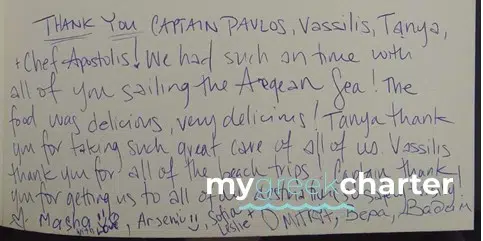 THANK YOU CAPTAIN PAVLOS, Vassilis, Tanya,
+ Chef Apostolis! We had such an time with
all of you sailing the Aegean Sea! The
food was delicious, very delicious! Tanya thank
you for taking such great care of all of us. Vassilis
thank you for all of the beach trips! Captain thank
you for getting us to all of
mygreekcharter
Masha with love, Arseniy, Sofia + Leslie DMITRIY, Вера, Вадим